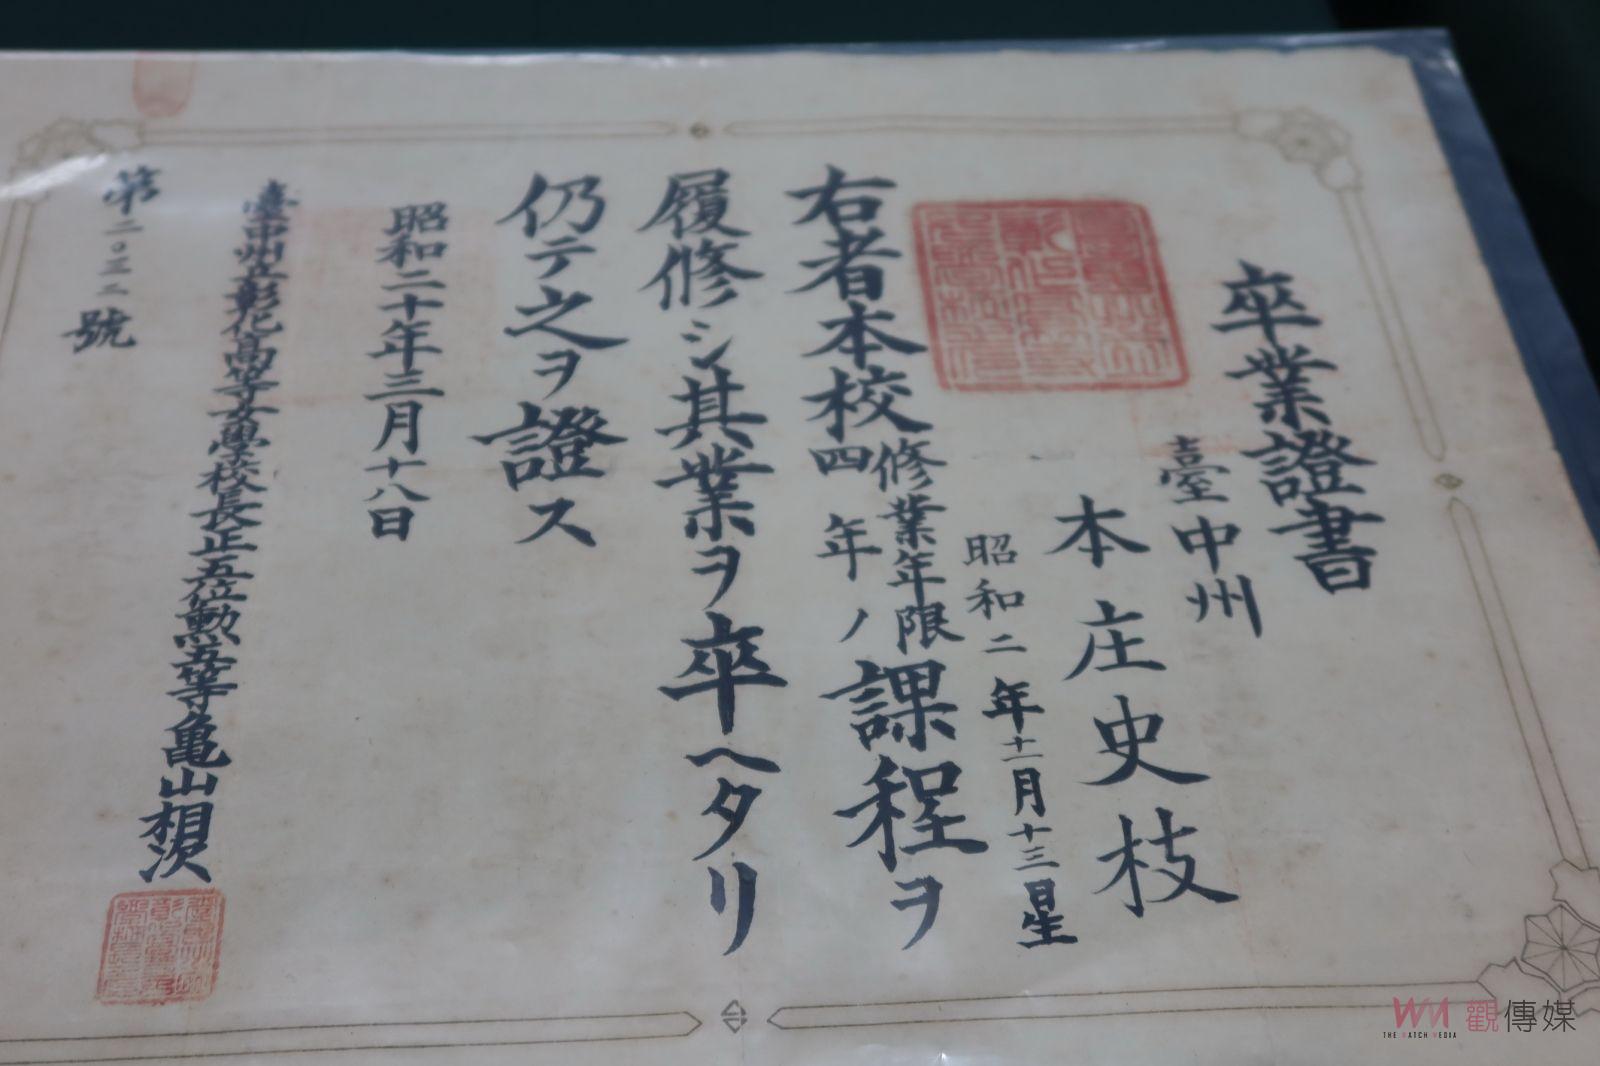 卒業證書
臺中州
本庄史枝
昭和二年十二月十三日生
右者本校修業年限四年ノ課程ヲ
履修シ其業ヲ卒ヘタリ
仍テ之ヲ證ス
昭和二十年三月十八日
臺中州立彰化高等女學校長正五位勲五等亀山相次
第二〇三二號
WM 觀傳媒
THE WATCH MEDIA